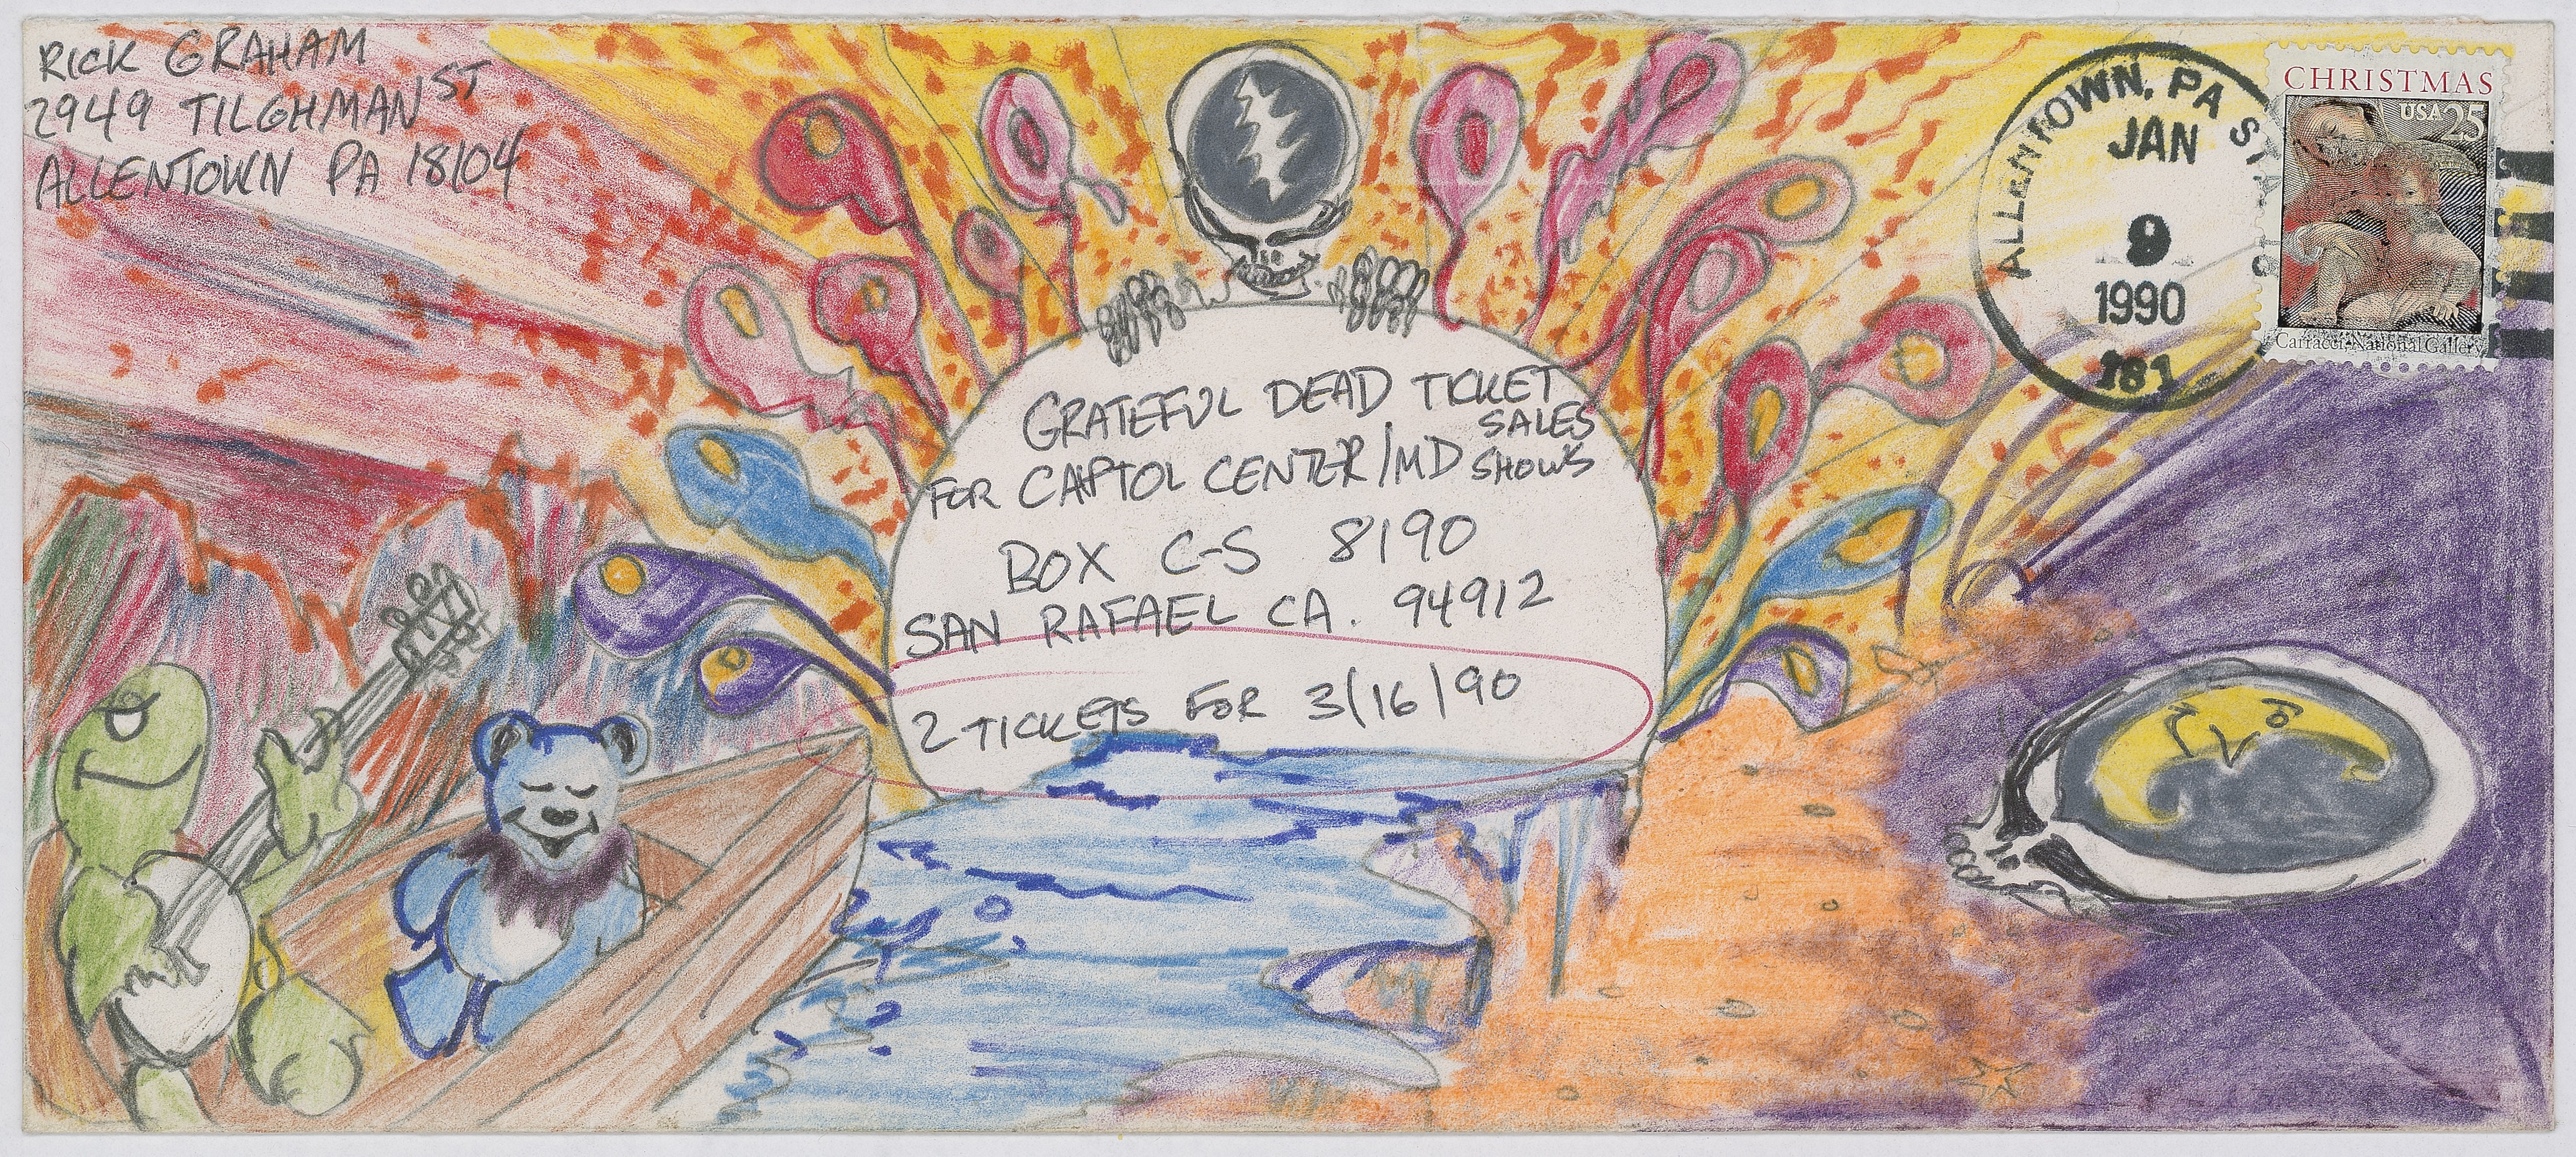 RICK GRAHAM
2949 TILGHMAN ST
ALLENTOWN PA 18104
ALLENTOWN, PA STA
JAN
9
1990
181
CHRISTMAS
USA 25
Carracci, National Gallery
GRATEFUL DEAD TICKET
SALES
FOR CAPTOL CENTER/MD SHOWS
BOX C-S 8190
SAN RAFAEL CA. 94912
2 TICKETS FOR 3/16/90